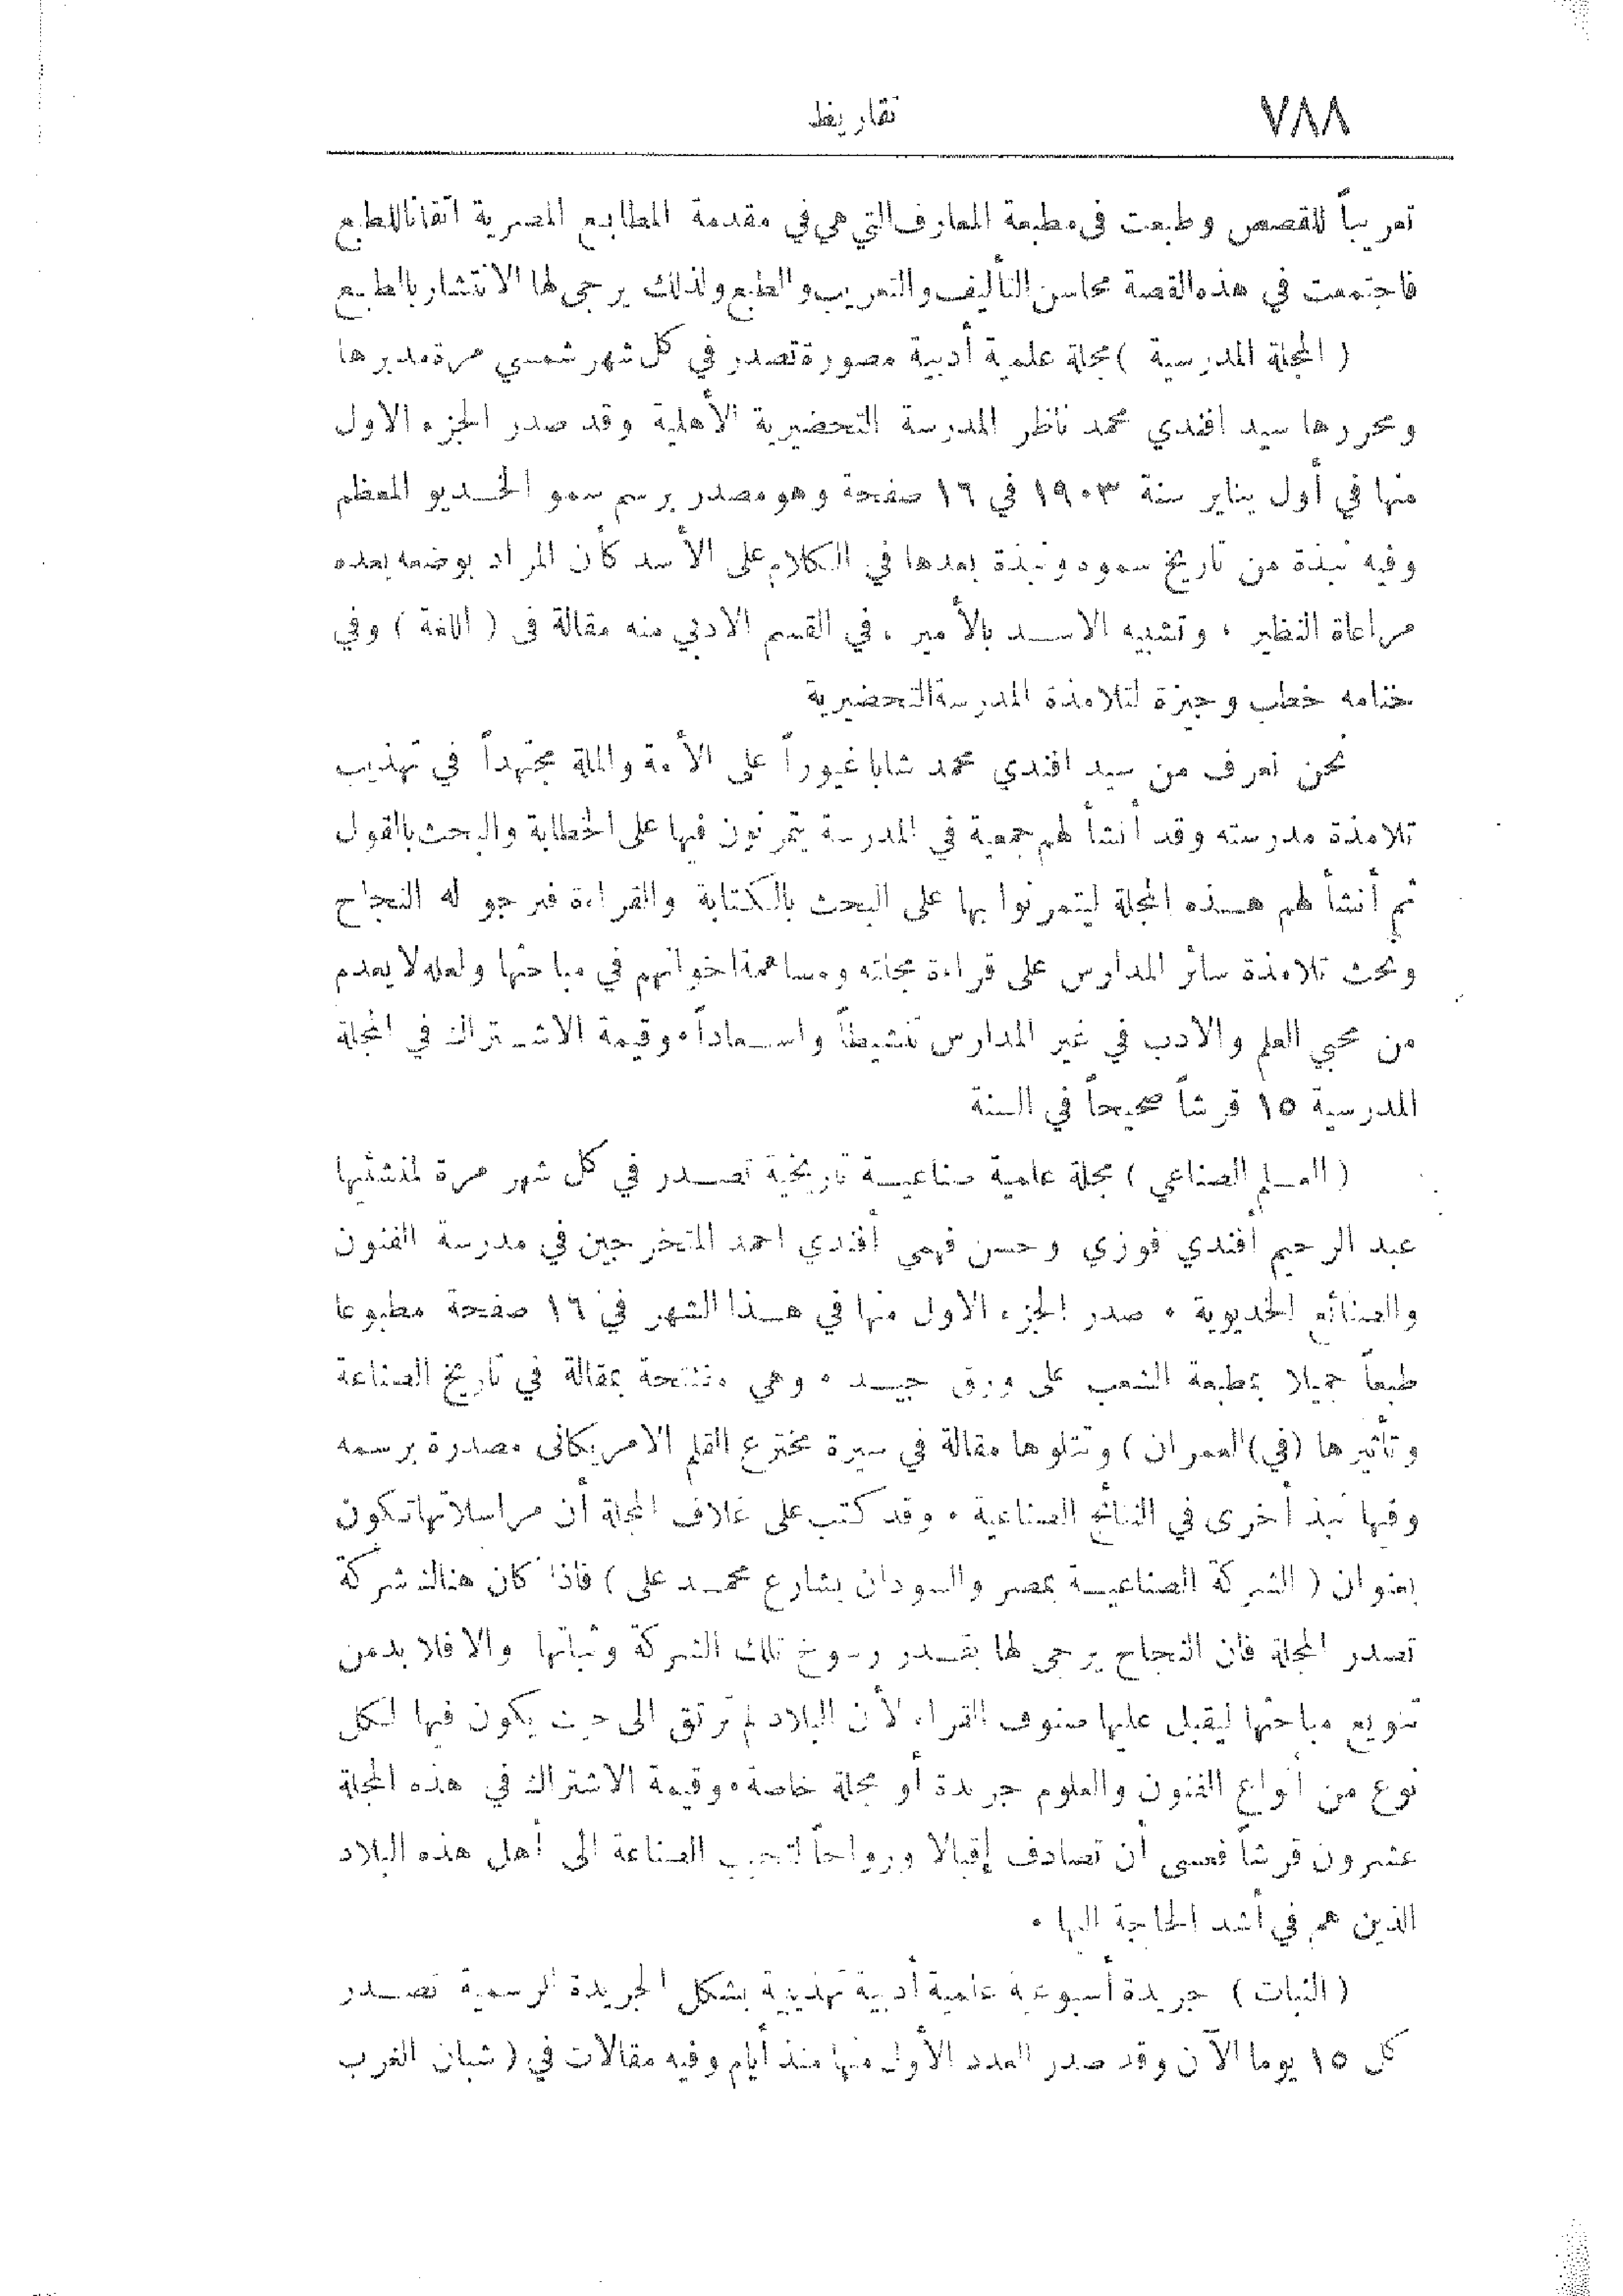 ٧٨٨
تقاريظ
تعريباً للقصص وطبعت في مطبعة المعارف التي هي في مقدمة المطابع المصرية اتقانا للطبع
فاجتمعت في هذه القصة محاسن التأليف والتعريب والطبع ولذلك يرجى لها الانتشار بالطبع
( المجلة المدرسية ) مجلة علمية أدبية مصورة تصدر في كل شهر شمسي مرة مديرها
ومحررها سيد افندي محمد ناظر المدرسة التحضيرية الأهلية وقد صدر الجزء الاول
منها في أول يناير سنة ١٩٠٣ في ١٦ صفحة وهو مصدر برسم سمو الخديو المعظم
وفيه نبذة من تاريخ سموه ونبذة بعدها في الكلام على الأسد كأن المراد بوضعه بعده
مراعاة النظير ، وتشبيه الاسد بالأمير ، في القسم الادبي منه مقالة في ( اللغة ) وفي
ختامه خطب وجيزة لتلامذة المدرسة التحضيرية
نحن نعرف من سيد افندي محمد شابا غيوراً على الأمة والملة مجتهداً في تهذيب
تلامذة مدرسته وقد أنشأ لهم جمعية في المدرسة يتمرنون فيها على الخطابة والبحث بالقول
ثم أنشأ لهم هذه المجلة ليتمرنوا بها على البحث بالكتابة والقراءة فنرجو له النجاح
ونحث تلامذة سائر المدارس على قراءة مجلته ومساهمة اخوانهم في مباحثها ولعله لا يعدم
من محبي العلم والادب في غير المدارس تنشيطاً واسعاداً ٠ وقيمة الاشتراك في المجلة
المدرسية ١٥ قرشاً صحيحاً في السنة
( العلم الصناعي ) مجلة علمية صناعية تاريخية تصدر في كل شهر مرة لمنشئيها
عبد الرحيم أفندي فوزي وحسن فهمي أفندي احمد المتخرجين في مدرسة الفنون
والصنائع الخديوية ٠ صدر الجزء الاول منها في هذا الشهر في ١٦ صفحة مطبوعا
طبعاً جميلا بمطبعة الشعب على ورق جيد ٠ وهي مفتتحة بمقالة في تاريخ الصناعة
وتأثيرها (في) العمران ) وتتلوها مقالة في سيرة مخترع القلم الامريكاني مصدرة برسمه
وفيها نبذ أخرى في النتائج الصناعية ٠ وقد كتب على غلاف المجلة أن مراسلاتها تكون
بعنوان ( الشركة الصناعية بمصر والسودان بشارع محمد علي ) فاذا كان هنالك شركة
تصدر المجلة فان النجاح يرجى لها بقدر رسوخ تلك الشركة وثباتها والا فلا بد من
تنويع مباحثها ليقبل عليها صنوف القراء لأن البلاد لم ترتق الى حيث يكون فيها لكل
نوع من أنواع الفنون والعلوم جريدة أو مجلة خاصة ٠ وقيمة الاشتراك في هذه المجلة
عشرون قرشاً فعسى أن تصادف إقبالا ورواجاً لتحبب الصناعة الى أهل هذه البلاد
الذين هم في أشد الحاجة اليها ٠
( النبات ) جريدة أسبوعية علمية أدبية تهذيبية بشكل الجريدة الرسمية تصدر
كل ١٥ يوما الآن وقد صدر العدد الأول منها منذ أيام وفيه مقالات في ( شبان الغرب